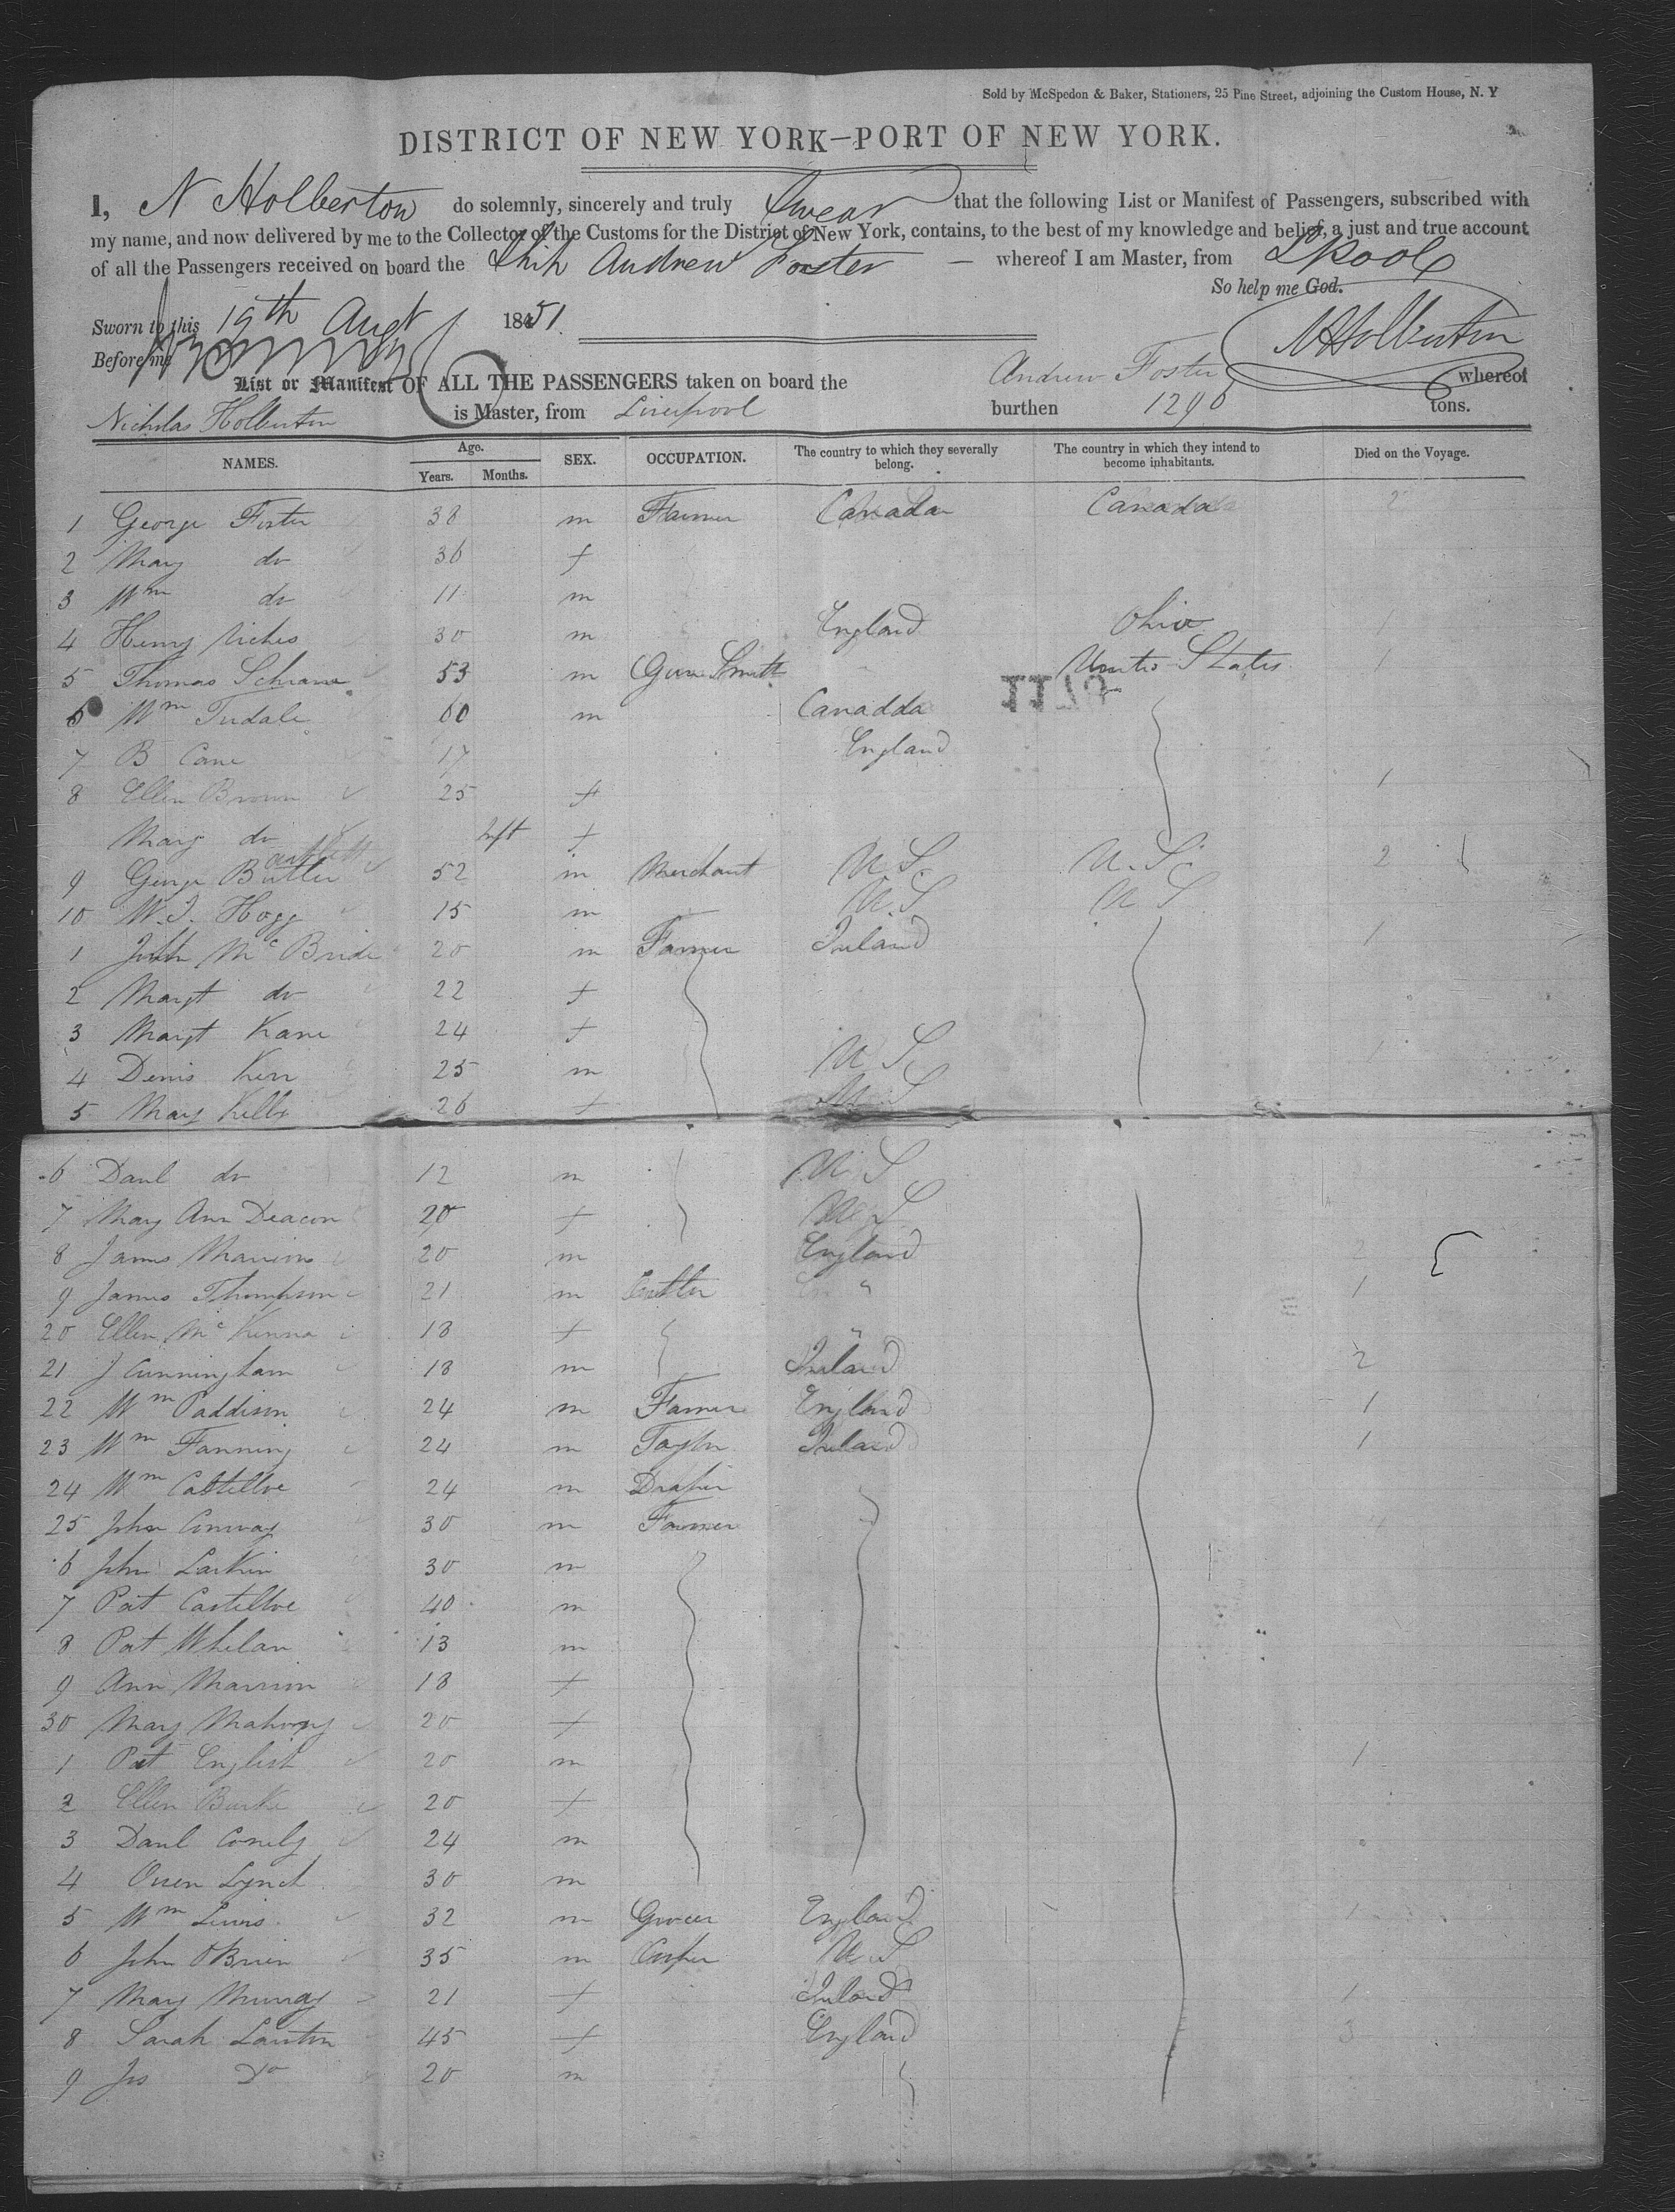 Sold by McSpedon & Baker, Stationers, 25 Pine Street, adjoining the Custom House, N. Y
DISTRICT OF NEW YORK—PORT OF NEW YORK.
I, N Holberton do solemnly, sincerely and truly Swear that the following List or Manifest of Passengers, subscribed with
my name, and now delivered by me to the Collector of the Customs for the District of New York, contains, to the best of my knowledge and belief, a just and true account
of all the Passengers received on board the Ship Andrew Foster — whereof I am Master, from Lpool
So help me God.
Sworn to this 19th Augt 1851.
N Holberton
Before me
List or Manifest OF ALL THE PASSENGERS taken on board the Andrew Foster whereof
Nicholas Holberton is Master, from Liverpool burthen 1290 tons.
NAMES. Age. Years. Months. SEX. OCCUPATION. The country to which they severally belong. The country in which they intend to become inhabitants. Died on the Voyage.
1 George Foster 38 m Farmer Canada Canada 2
2 Mary do 36 f
3 Wm do 11 m
4 Henry 30 m England Ohio 1
5 Thomas 53 m Gun Smith United States 1
1170
6 Wm Tisdale 60 m Canadda
7 B Cane 17 England
8 Ellen Brown 25 f 1
Mary do Inft f
9 George Butler 52 m Merchant U.S. U.S. 2
10 W.J. Hogg 15 m U.S U S
1 John McBride 20 m Farmer Ireland 1
2 Margt do 22 f
3 Margt Kane 24 f
4 Denis Kerr 25 m U S
5 Mary Kelly 26 f U S
6 Danl do 12 m U S
7 Mary Ann Deacon 20 f U S
8 James Marrion 20 m England 2
9 James Thompson 21 m Cutler " 1
20 Ellen McKenna 18 f "
21 J Cunningham 18 m Ireland 2
22 Wm Paddison 24 m Farmer England 1
23 Wm Fanning 24 m Taylor Ireland 1
24 Wm Costelloe 24 m Draper
25 John Conway 30 m Farmer
6 John Larkin 30 m
7 Pat Castelloe 40 m
8 Pat Whelan 13 m
9 Ann Marrion 18 f
30 Mary Mahony 20 f
1 Pat English 20 m 1
2 Ellen Burke 20 f
3 Danl Conely 24 m
4 Owen Lynch 30 m
5 Wm Lewis 32 m Grocer England
6 John OBrien 35 m Cooper U S
7 Mary Murray 21 f Ireland 1
8 Sarah Lawton 45 f England 3
9 Jas Do 20 m